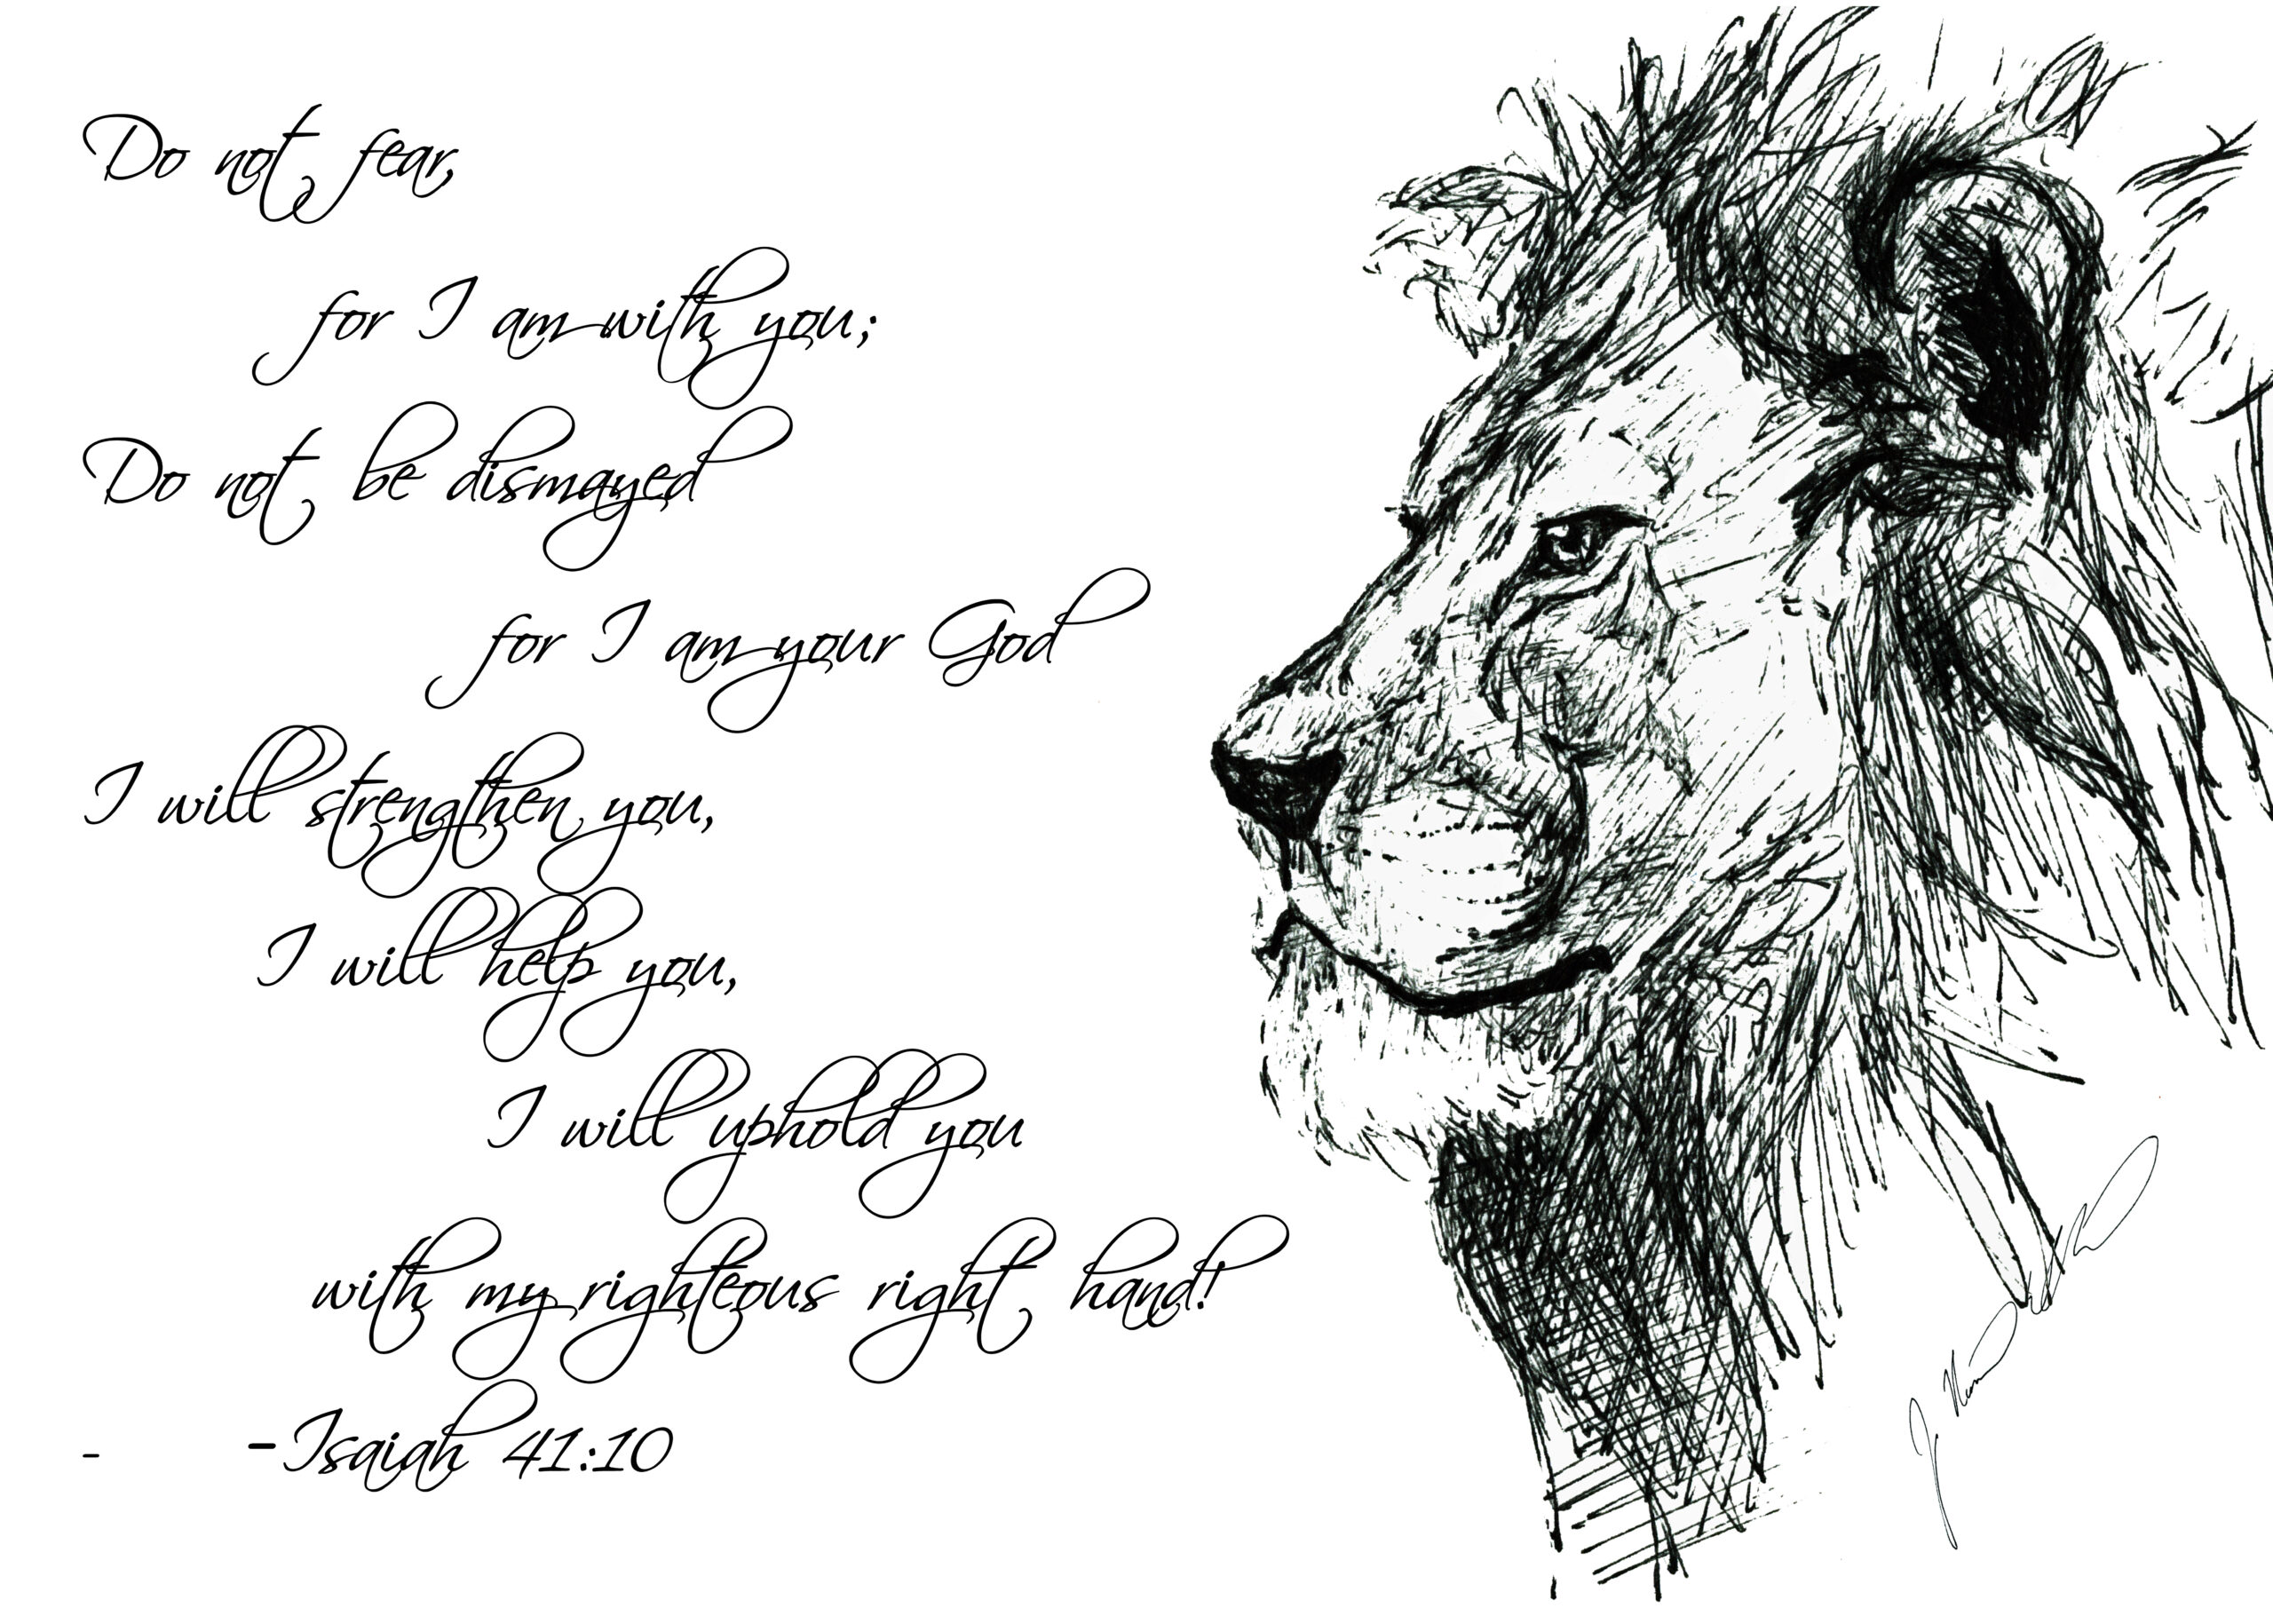 Do not fear,
for I am with you;
Do not be dismayed
for I am your God
I will strengthen you,
I will help you,
I will uphold you
with my righteous right hand!
- -Isaiah 41:10